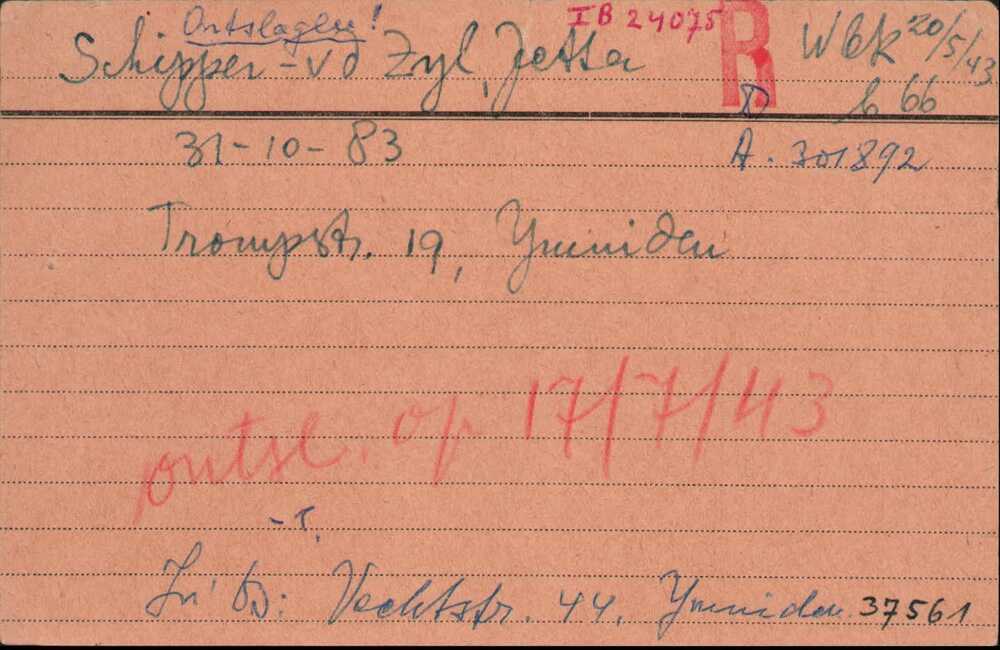 Ontslagen! IB 24075 R Wbk 20/5/43
Schipper-vd Zyl, Jetta
b 66
31-10-83 A. 301892
Trompstr. 19, Ymuiden
ontsl. op 17/7/43
-T.
In B: Vechtstr. 44. Ymuiden. 37561